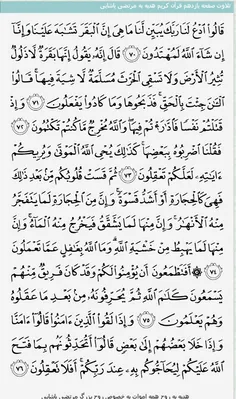 تلاوت صفحه یازدهم قرآن کریم هدیه به مرتضی پاشایی
قَالُوا۟ ٱدْعُ لَنَا رَبَّكَ يُبَيِّن لَّنَا مَا هِىَ إِنَّ ٱلْبَقَرَ تَشَٰبَهَ عَلَيْنَا وَإِنَّآ
إِن شَآءَ ٱللَّهُ لَمُهْتَدُونَ ٧٠ قَالَ إِنَّهُۥ يَقُولُ إِنَّهَا بَقَرَةٌ لَّا ذَلُولٌ
تُثِيرُ ٱلْأَرْضَ وَلَا تَسْقِى ٱلْحَرْثَ مُسَلَّمَةٌ لَّا شِيَةَ فِيهَا قَالُوا۟
ٱلْـَٰٔنَ جِئْتَ بِٱلْحَقِّ فَذَبَحُوهَا وَمَا كَادُوا۟ يَفْعَلُونَ ٧١ وَإِذْ
قَتَلْتُمْ نَفْسًا فَٱدَّٰرَْٰٔتُمْ فِيهَا وَٱللَّهُ مُخْرِجٌ مَّا كُنتُمْ تَكْتُمُونَ ٧٢
فَقُلْنَا ٱضْرِبُوهُ بِبَعْضِهَا كَذَٰلِكَ يُحْىِ ٱللَّهُ ٱلْمَوْتَىٰ وَيُرِيكُمْ
ءَايَٰتِهِۦ لَعَلَّكُمْ تَعْقِلُونَ ٧٣ ثُمَّ قَسَتْ قُلُوبُكُم مِّنۢ بَعْدِ ذَٰلِكَ
فَهِىَ كَٱلْحِجَارَةِ أَوْ أَشَدُّ قَسْوَةً وَإِنَّ مِنَ ٱلْحِجَارَةِ لَمَا يَتَفَجَّرُ
مِنْهُ ٱلْأَنْهَٰرُ وَإِنَّ مِنْهَا لَمَا يَشَّقَّقُ فَيَخْرُجُ مِنْهُ ٱلْمَآءُ وَإِنَّ
مِنْهَا لَمَا يَهْبِطُ مِنْ خَشْيَةِ ٱللَّهِ وَمَا ٱللَّهُ بِغَٰفِلٍ عَمَّا تَعْمَلُونَ
٧٤ أَفَتَطْمَعُونَ أَن يُؤْمِنُوا۟ لَكُمْ وَقَدْ كَانَ فَرِيقٌ مِّنْهُمْ
يَسْمَعُونَ كَلَٰمَ ٱللَّهِ ثُمَّ يُحَرِّفُونَهُۥ مِنۢ بَعْدِ مَا عَقَلُوهُ
وَهُمْ يَعْلَمُونَ ٧٥ وَإِذَا لَقُوا۟ ٱلَّذِينَ ءَامَنُوا۟ قَالُوٓا۟ ءَامَنَّا
وَإِذَا خَلَا بَعْضُهُمْ إِلَىٰ بَعْضٍ قَالُوٓا۟ أَتُحَدِّثُونَهُم بِمَا فَتَحَ
ٱللَّهُ عَلَيْكُمْ لِيُحَآجُّوكُم بِهِۦ عِندَ رَبِّكُمْ أَفَلَا تَعْقِلُونَ ٧٦
هدیه به روح همه اموات به خصوص روح بزرگ مرتضی پاشایی